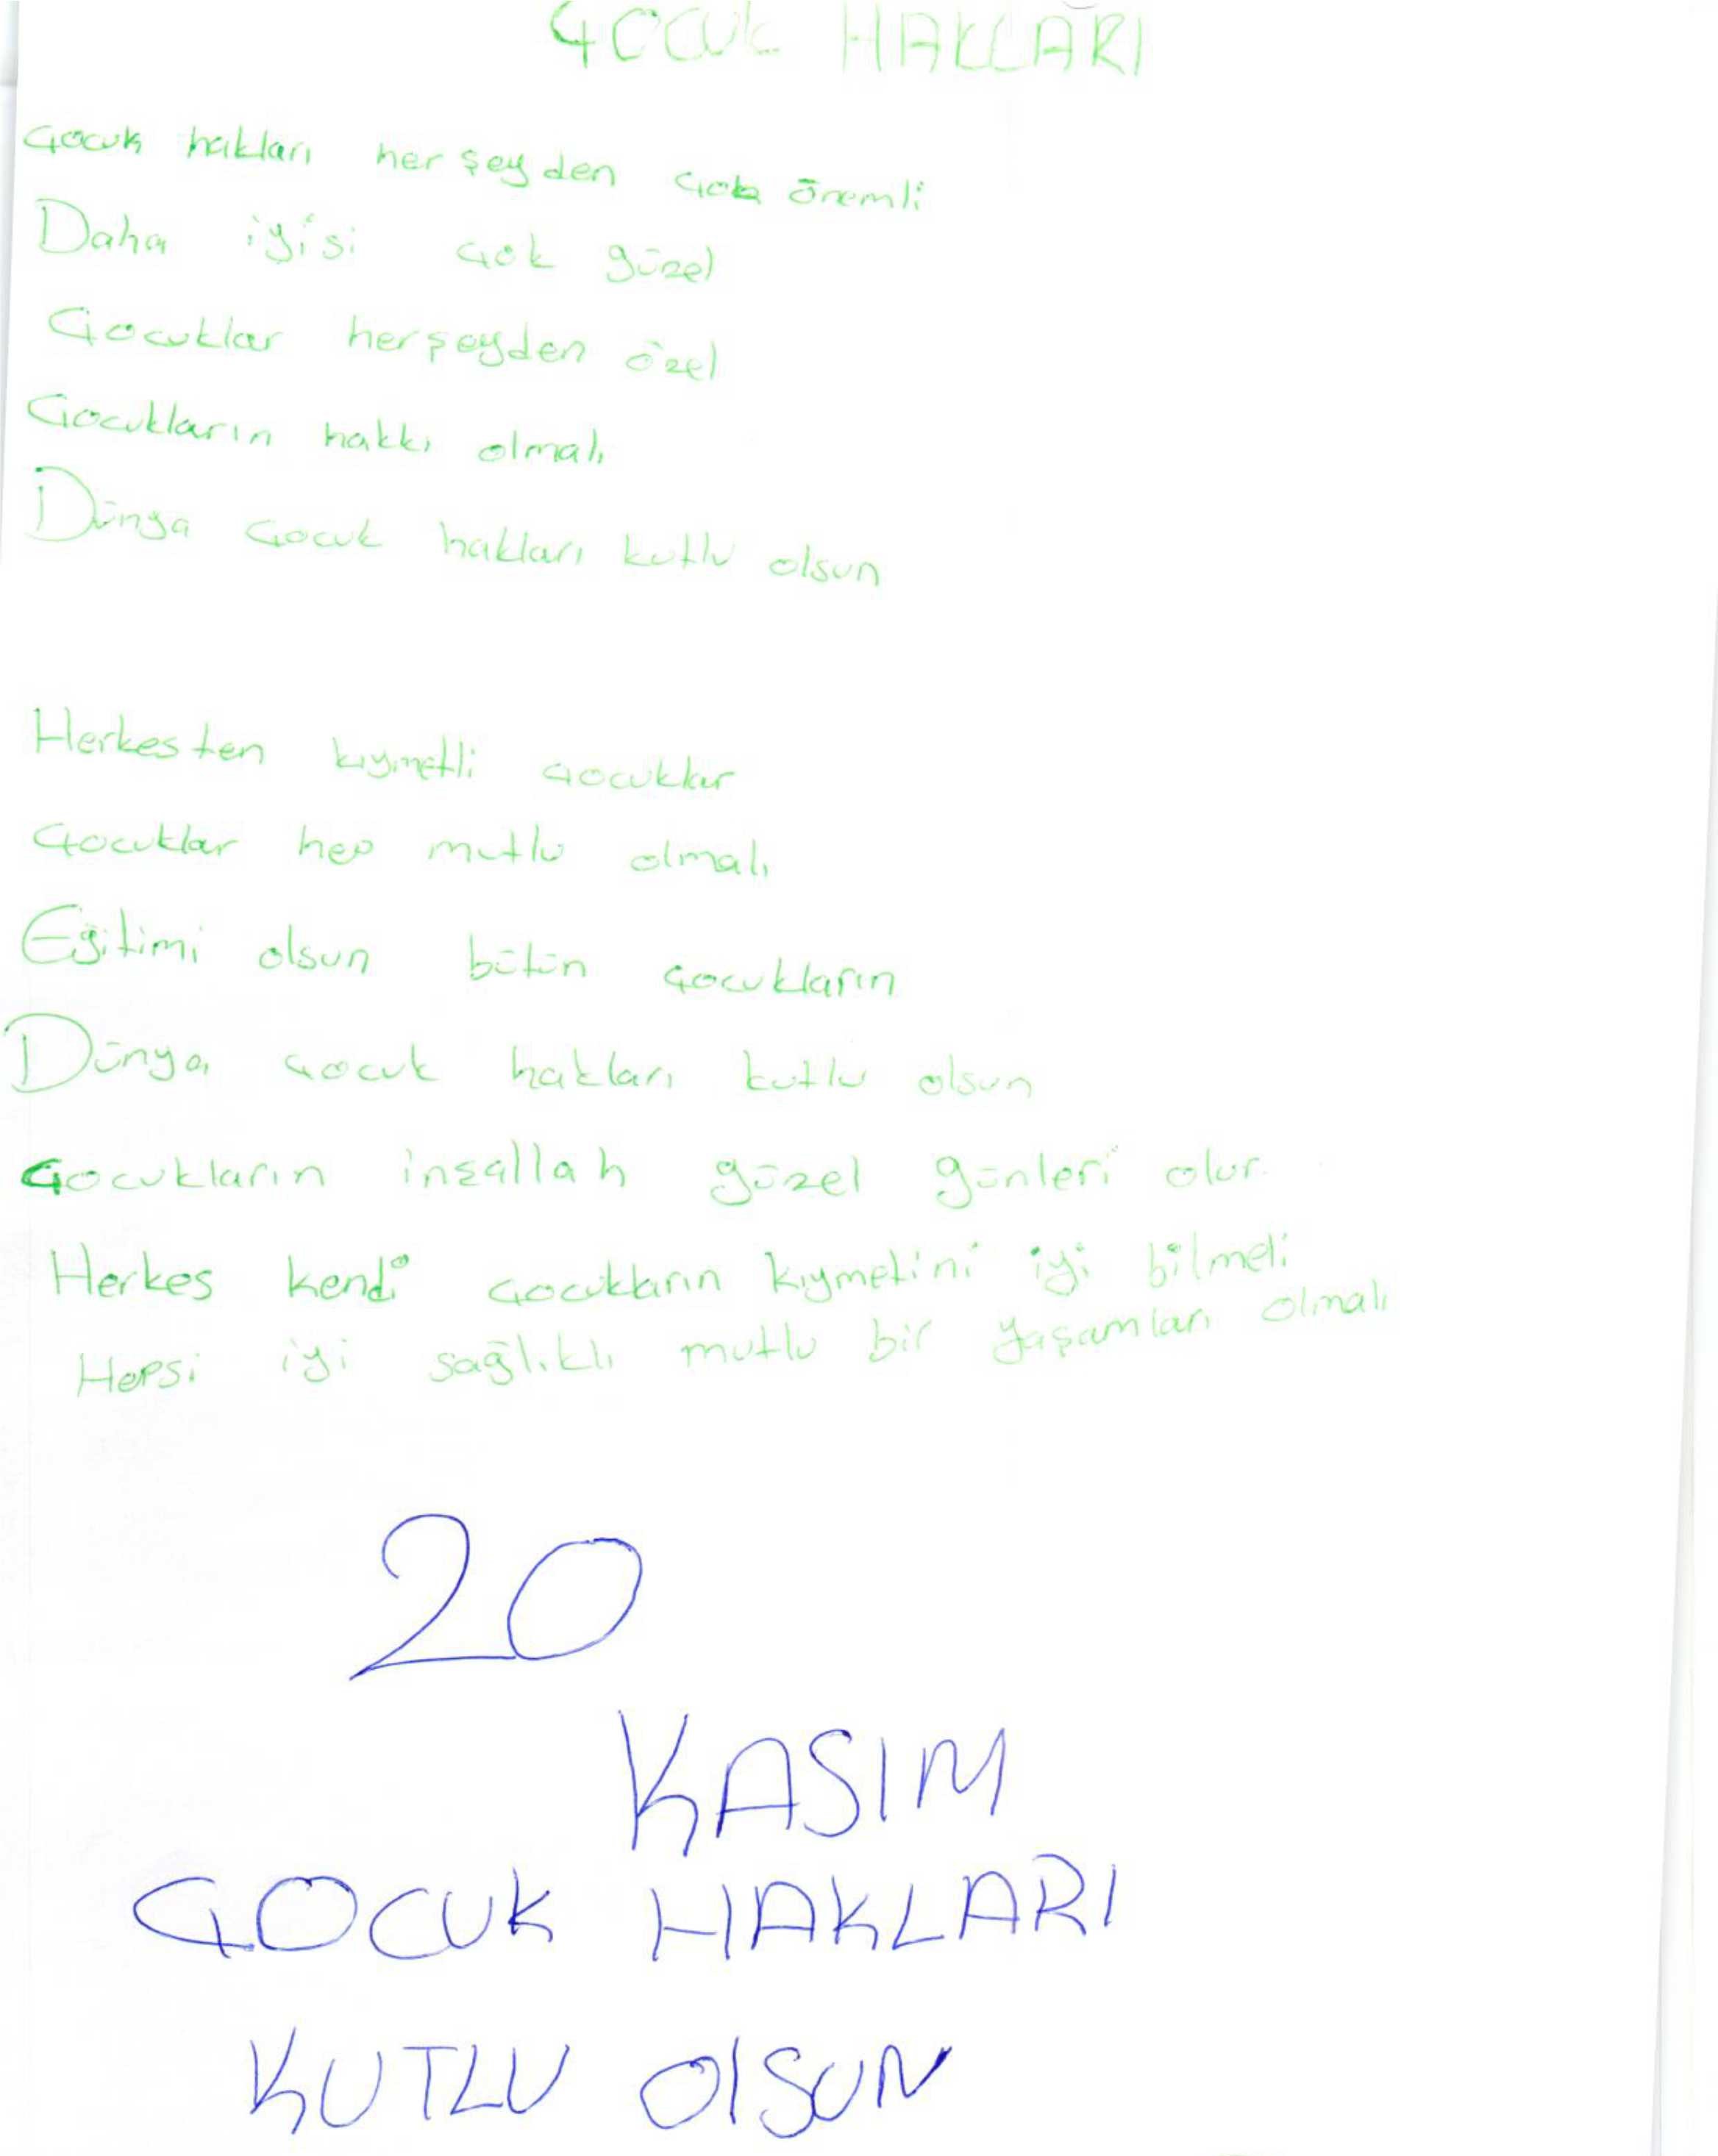 ÇOCUK HAKLARI
Çocuk hakları her şeyden çok önemli
Daha iyisi çok güzel
Çocuklar herşeyden özel
Çocukların hakkı olmalı
Dünya çocuk hakları kutlu olsun
Herkesten kıymetli çocuklar
Çocuklar hep mutlu olmalı
Eğitimi olsun bütün çocukların
Dünya çocuk hakları kutlu olsun
Çocukların inşallah güzel günleri olur
Herkes kendi çocukların kıymetini iyi bilmeli
Hepsi iyi sağlıklı mutlu bir yaşamları olmalı
20
KASIM
ÇOCUK HAKLARI
KUTLU OlSUN